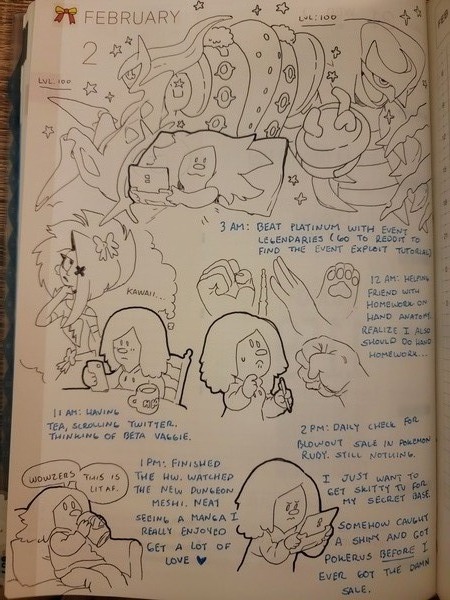 FEBRUARY
2
LVL: 100
LVL: 100
3 AM: BEAT PLATINUM WITH EVENT
LEGENDARIES (GO TO REDDIT TO
FIND THE EVENT EXPLOIT TUTORIAL)
KAWAII...
12 AM: HELPING
FRIEND WITH
HOMEWORK ON
HAND ANATOMY.
REALIZE I ALSO
SHOULD DO HAND
HOMEWORK...
11 AM: HAVING
TEA, SCROLLING TWITTER.
THINKING OF BETA VAGGIE.
2 PM: DAILY CHECK FOR
BLOWOUT SALE IN POKEMON
RUBY. STILL NOTHING.
WOWZERS
THIS IS
LIT AF.
1 PM: FINISHED
THE HW. WATCHED
THE NEW DUNGEON
MESHI. NEAT
SEEING A MANGA I
REALLY ENJOYED
GET A LOT OF
LOVE ♥
I JUST WANT TO
GET SKITTY TV FOR
MY SECRET BASE.
SOMEHOW CAUGHT
A SHINY AND GOT
POKERUS BEFORE I
EVER GOT THE DAMN
SALE.